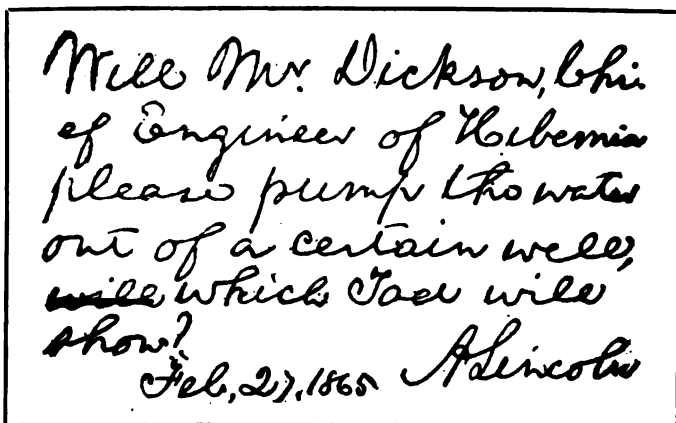 Will Mr. Dickson, Chi-
ef Engineer of Hibernia
please pump the water
out of a certain well,
will which Tad will
show?
Feb. 27, 1865 A Lincoln